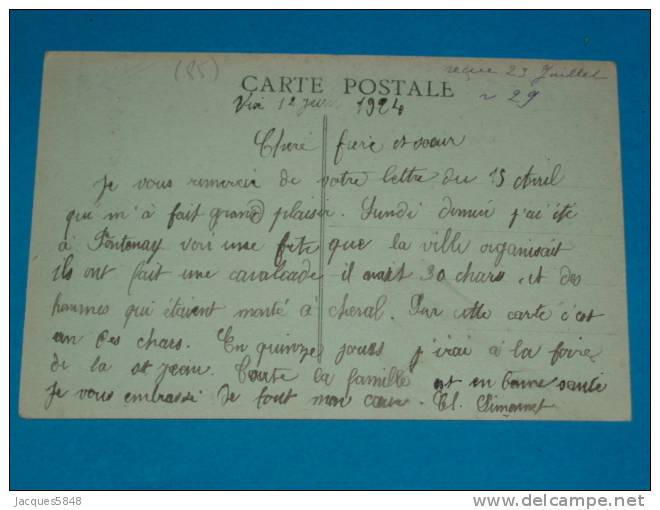 (85)
reçue 23 Juillet
29
CARTE POSTALE
Vix 12 juin 1924
Chere frere et soeur
Je vous remercie de votre lettre du 15 Avril
qui m'a fait grand plaisir. Lundi dernier j'ai été
à Fontenay voir une fête que la ville organisait
ils ont fait une cavalcade il avait 30 chars, et des
hommes qui étaient monté à cheval. Sur cette carte c'est
un des chars. En quinze jours j'irai à la foire
de la st Jean. Toute la famille est en bonne santé
Je vous embrasse de tout mon coeur. Cl. Simonnet
Jacques5848
delcampe.net